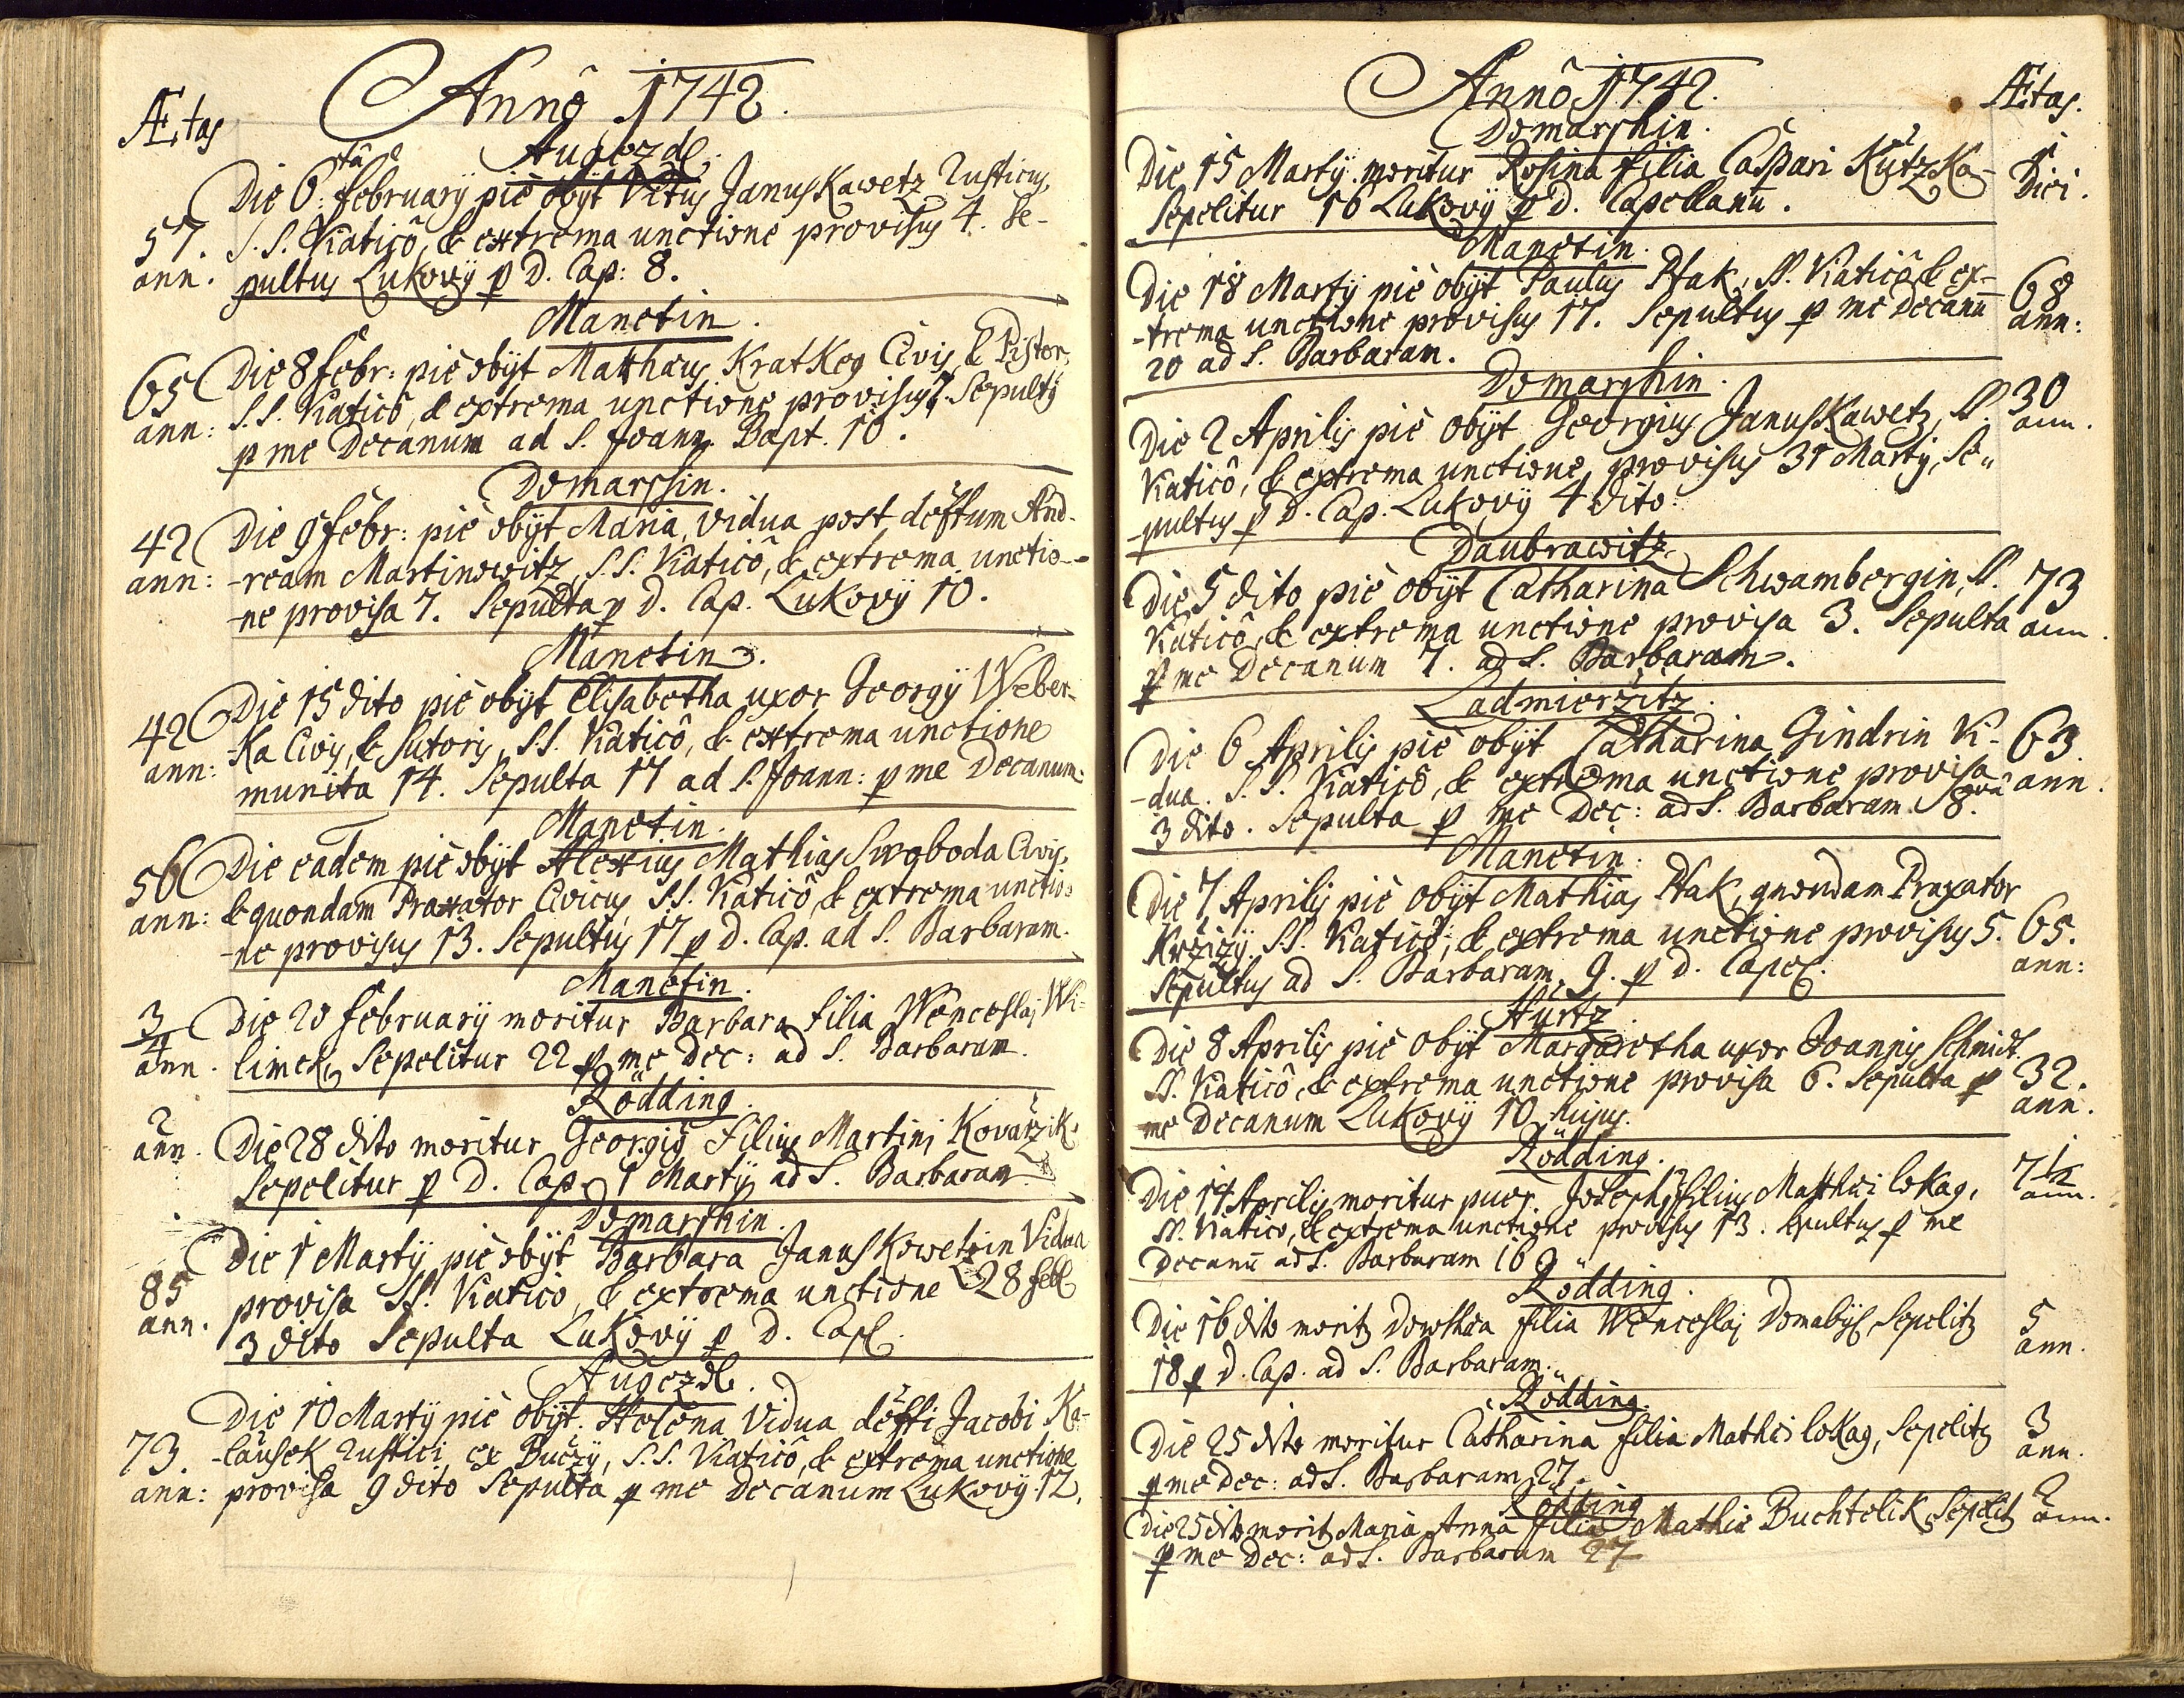 Ætas
Annô 1742.
Augezdl.
Die 6.tâ February piè obÿt Vitus Januskawetz Rusticus,
57. S.S. Viaticô, & extrema unctione provisus 4. Se-
ann. pultus Lukovÿ p D. Cap: 8.
Manetin.
65 Die 8 Febr: piè obÿt Mathæus Kratkeg Civis, & Pistor,
ann: S.S. Viaticô, & extrema unctione provisus 7. Sepultus
p me Decanum ad S. Joann. Bapt. 10.
Domarshin.
42 Die 9 Febr: piè obÿt Maria, Vidua post deftum And-
ann: -ream Martinowitz, S.S. Viaticô, & extrema unctio-
-ne provisa 7. Sepulta p D. Cap. Lukovÿ 10.
Manetin.
42 Die 15 dito piè obÿt Elisabetha uxor Georgÿ Weber-
ann: -Ka Civis, & Sutoris, S.S. Viaticô, & extrema unctione
munita 14. Sepulta 17 ad S. Joann: p me Decanum.
Manetin.
56 Die eadem piè obÿt Alexius Mathias Swoboda Civis,
ann: & quondam Praxator Civicus, S.S. Viaticô, & extrema unctio-
-ne provisus 13. Sepultus 17 p D. Cap. ad S. Barbaram.
Manetin.
3/4 Die 20 February moritur Barbara filia Wenceslaj Wi-
ann. limek, Sepelitur 22 p me Dec: ad S. Barbaram.
Rödding.
2 ann. Die 28 dito moritur Georgiŭ Filius Martini Kovaržik
Sepelitur p D. Cap. 1 Martÿ ad S. Barbaram.
Domarshin.
Die 1 Martÿ piè obÿt Barbara Januskowetzin Vidua
85 provisa SS. Viatico, & extrema unctione 28 feb
ann. 3 dito Sepulta Lukovÿ p D. Cap.
Augezdl.
Die 10 Martÿ piè obÿt Helena Vidua defti Jacobi Ka-
73. -laŭsek Rustici, ex Bučzy, S.S. Viaticô, & extrema unctione
ann: provisa 9 dito Sepulta p me Decanum Lukovÿ 12.
Annô 1742.
Ætas.
Domarshin.
Die 15 Martÿ moritur Rosina filia Caspari Kŭtzka- 1
Sepelitur 16 Lukovÿ p D. Capellanū. Diei.
Manetin.
Die 18 Martÿ piè obÿt Paulus Ptak, SS. Viaticô, & ex- 68
-trema unctione provisus 17. Sepultus p me Decanū ann:
20 ad S. Barbaram.
Domarshin.
Die 2 Aprilis piè obÿt Georgius Januskawetz, SS. 30
Viaticô, & extrema unctione provisus 31 Martÿ, Se- ann.
-pultus p D. Cap. Lukovÿ 4 dito.
Daubrawitz
Die 5 dito piè obÿt Catharina Schwambergin, SS. 73
Viaticô, & extrema unctione provisa 3. Sepulta ann.
p me Decanum 7. ad S. Barbaram.
Ladmieržitz.
Die 6 Aprilis piè obÿt Catharina Gindrin Vi- 63.
-dua. S.S. Viaticô, & extrema unctione provisa ann.
3 dito. Sepulta p me Dec: ad S. Barbaram 8.avâ
Manetin.
Die 7 Aprilis piè obÿt Mathias Ptak, quondam Praxator
Kržižÿ S.S. Viaticô, & extrema unctione provisus 5. 65.
Sepultus ad S. Barbaram, 9. p D. Capel. ann:
Hŭrtz.
Die 8 Aprilis piè obÿt Margaretha uxor Joannis Schmidt.
SS. Viaticô, & extrema unctione provisa 6. Sepulta p 32.
me Decanum Lukovÿ 10 hujus. ann.
Rödding.
Die 14 Aprilis moritur puer Joseph, filius Matthæi lokag, 7 1/2
SS. Viatico, & extrema unctione provisus 13. Sepultus p me ann.
Decanū ad S. Barbaram 16
Rödding.
Die 16 dito morit Dorothea filia Wenceslaj Domabÿl, Sepelit 5
18 p D. Cap. ad S. Barbaram. ann.
Rödding.
Die 25 dito moritur Catharina filia Mathæi lokag, Sepelit 3
p me Dec: ad S. Barbaram 27. ann.
Rödding
Die 25 dito morit Maria Anna filia Mathiæ Buchtelik, Sepelit 2
p me Dec: ad S. Barbaram 27 ann.